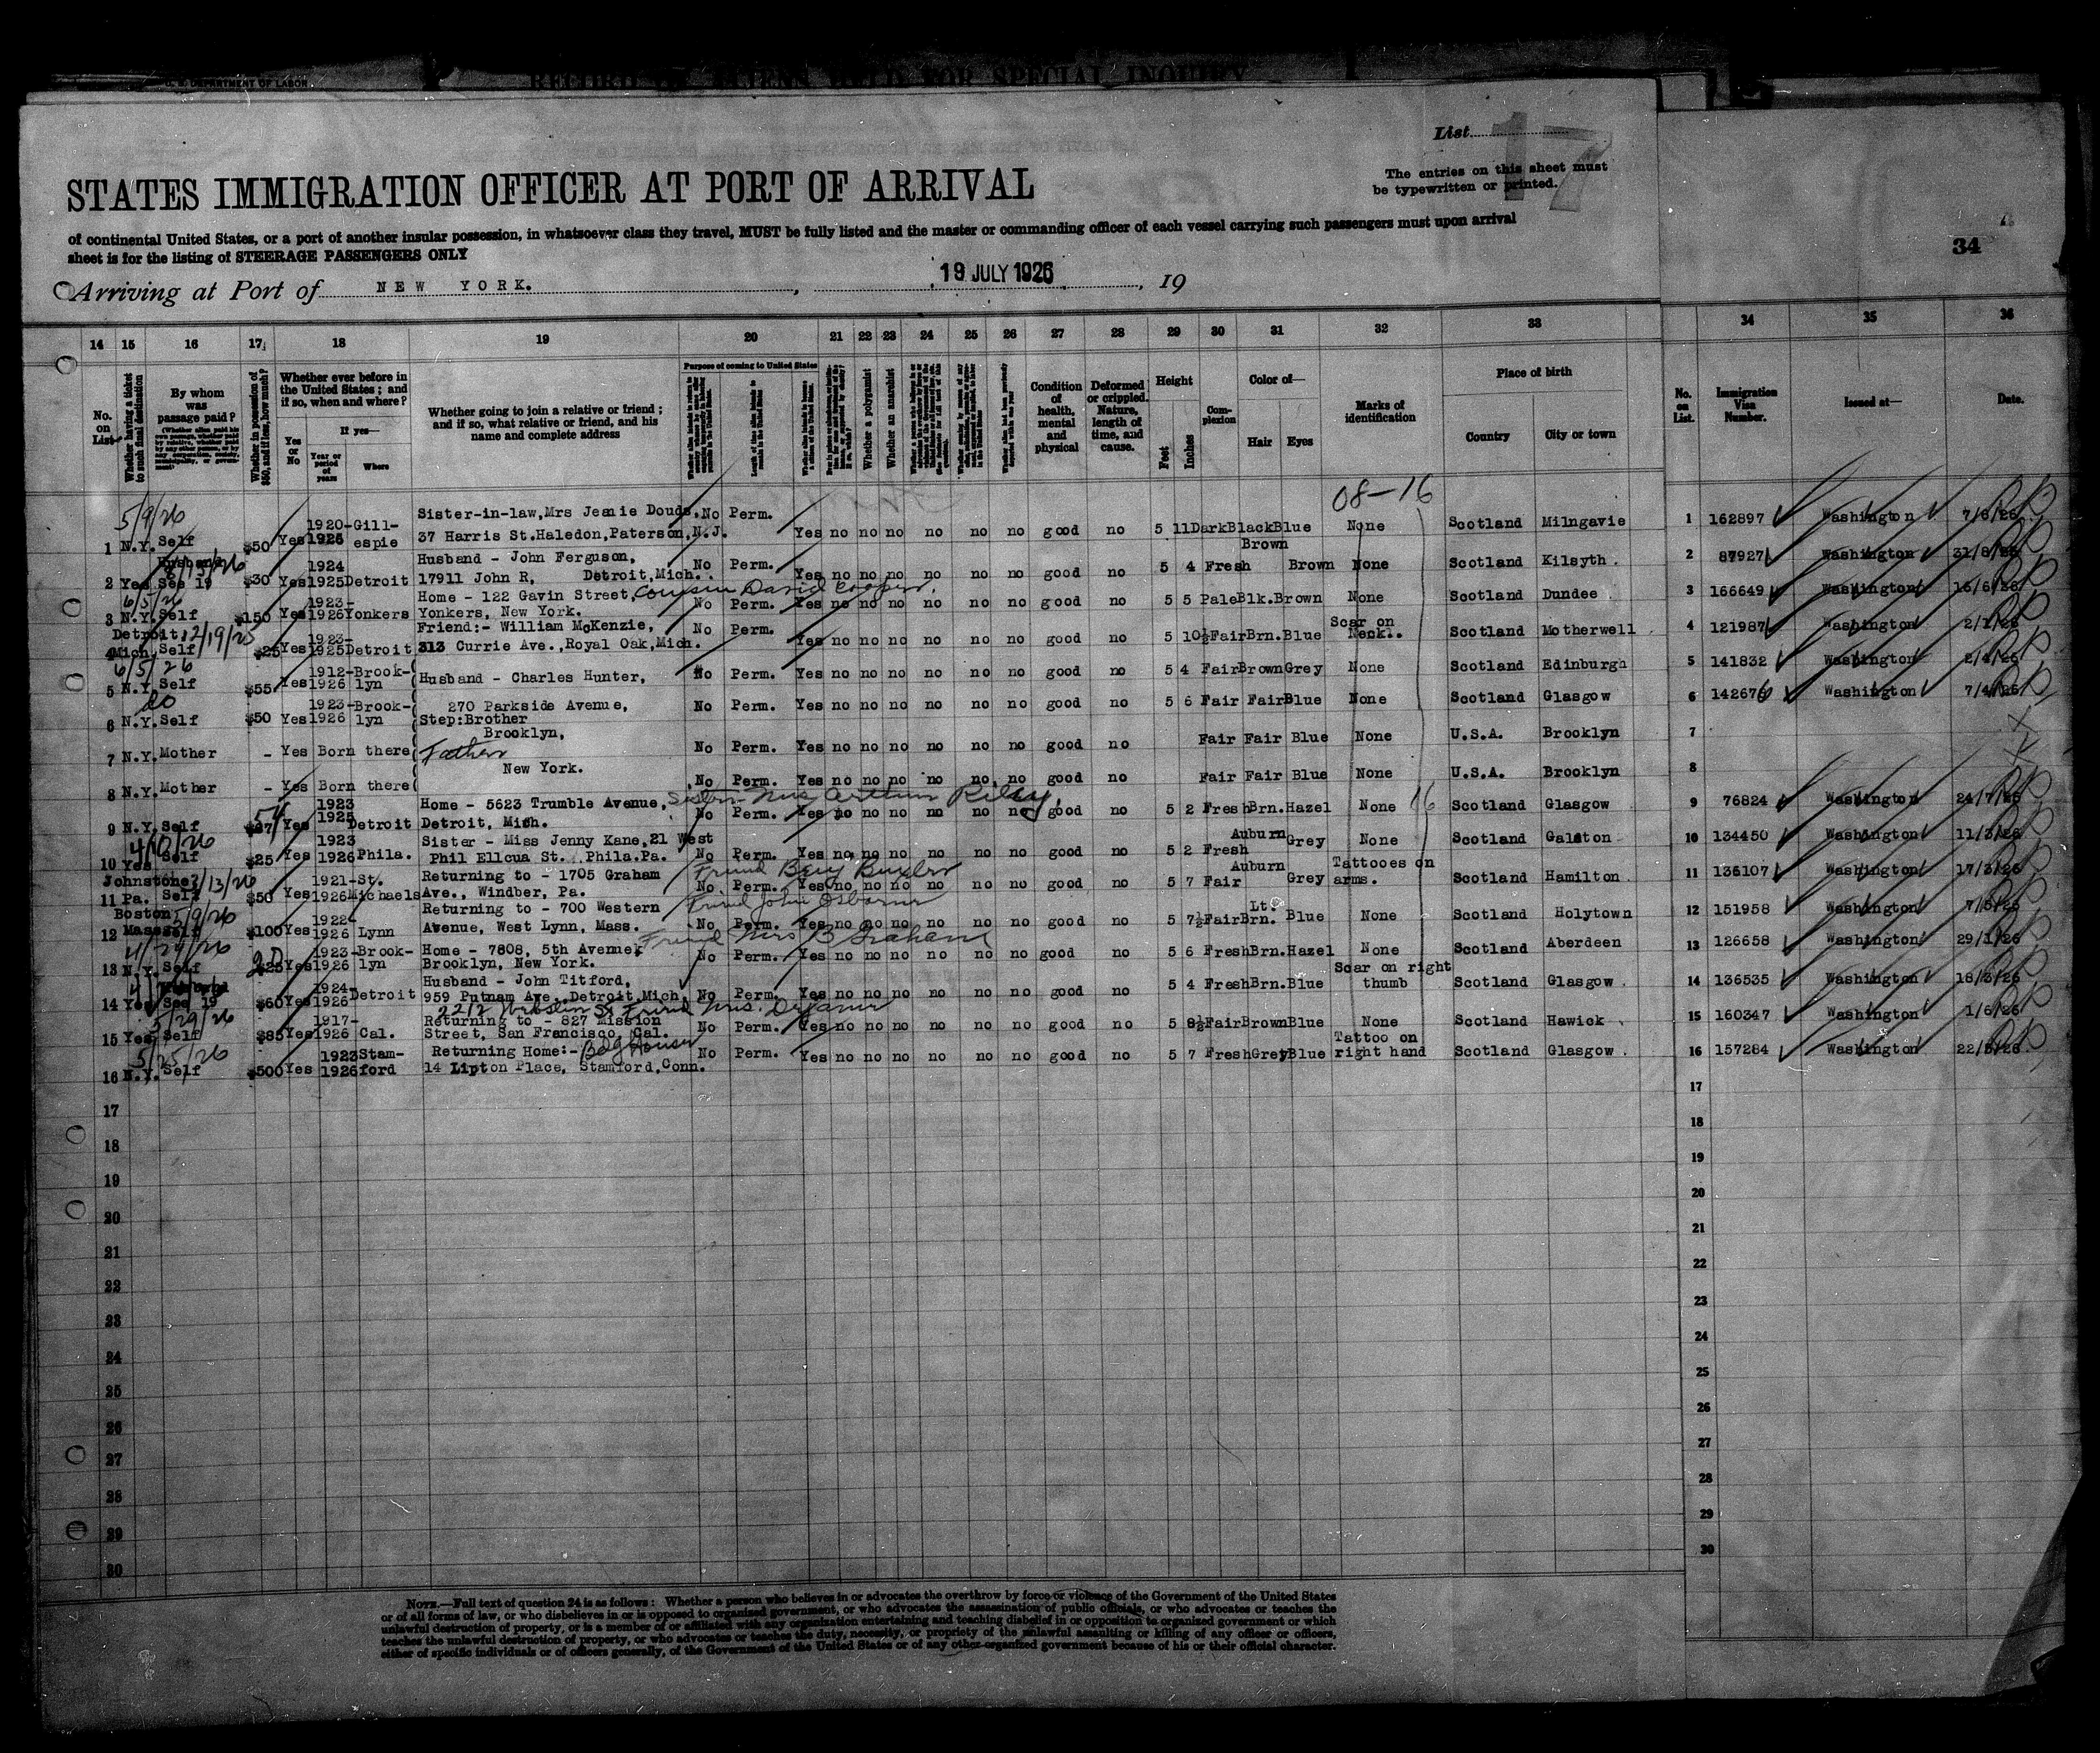 U. S. DEPARTMENT OF LABOR
RECORD OF ALIENS HELD FOR SPECIAL INQUIRY
List 17
The entries on this sheet must
be typewritten or printed.
STATES IMMIGRATION OFFICER AT PORT OF ARRIVAL
of continental United States, or a port of another insular possession, in whatsoever class they travel, MUST be fully listed and the master or commanding officer of each vessel carrying such passengers must upon arrival
sheet is for the listing of STEERAGE PASSENGERS ONLY
34
Arriving at Port of NEW YORK. , 19 JULY 1926 , 19
14 15 16 17 18 19 20 21 22 23 24 25 26 27 28 29 30 31 32 33 34 35 36
No. on List
Whether having a ticket to such final destination
By whom was passage paid?
Whether in possession of $50, and if less, how much?
Whether ever before in the United States; and if so, when and where?
Yes or No
If yes—
Year or period of years
Where
Whether going to join a relative or friend; and if so, what relative or friend, and his name and complete address
Purpose of coming to United States
Whether a polygamist
Whether an anarchist
Condition of health, mental and physical
Deformed or crippled. Nature, length of time, and cause.
Height
Feet
Inches
Complexion
Color of—
Hair
Eyes
Marks of identification
Place of birth
Country
City or town
No. on List.
Immigration Visa Number.
Issued at—
Date.
08-16
5/9/26
1 N.Y. Self $50 Yes 1920-1925 Gillespie Sister-in-law, Mrs Jeanie Douds, 37 Harris St. Haledon, Paterson, N.J. No Perm. Yes no no no no no no good no 5 11 Dark Black Blue None Scotland Milngavie 1 162897 Washington 7/6/26
2 Yes Husband See 19 $30 Yes 1924 1925 Detroit Husband - John Ferguson, 17911 John R, Detroit, Mich. No Perm. Yes no no no no no no good no 5 4 Fresh Brown Brown None Scotland Kilsyth 2 87927 Washington 31/8/25
6/5/26
3 N.Y. Self $150 Yes 1923-1926 Yonkers Home - 122 Gavin Street, Yonkers, New York. Cousin David Cooper. No Perm. Yes no no no no no no good no 5 5 Pale Blk. Brown None Scotland Dundee 3 166649 Washington 16/6/26
12/19/25
4 Detroit, Mich. Self $25 Yes 1923-1925 Detroit Friend:- William McKenzie, 313 Currie Ave., Royal Oak, Mich. No Perm. Yes no no no no no no good no 5 10½ Fair Brn. Blue Scar on Neck.. Scotland Motherwell 4 121987 Washington 2/1/26
6/5/26
5 N.Y. Self $55 Yes 1912-1926 Brooklyn Husband - Charles Hunter, No Perm. Yes no no no no no no good no 5 4 Fair Brown Grey None Scotland Edinburgh 5 141832 Washington 2/4/26
do
6 N.Y. Self $50 Yes 1923-1926 Brooklyn 270 Parkside Avenue, Step:Brother No Perm. Yes no no no no no no good no 5 6 Fair Fair Blue None Scotland Glasgow 6 142676 Washington 7/4/26
7 N.Y. Mother - Yes Born there Brooklyn, Father No Perm. Yes no no no no no no good no Fair Fair Blue None U.S.A. Brooklyn 7
8 N.Y. Mother - Yes Born there New York. No Perm. Yes no no no no no no good no Fair Fair Blue None U.S.A. Brooklyn 8
9 N.Y. Self Yes 1923 1925 Detroit Home - 5623 Trumble Avenue, Detroit, Mich. Sister Mrs Arthur Riley, No Perm. Yes no no no no no no good no 5 2 Fresh Brn. Hazel None Scotland Glasgow 9 76824 Washington 24/7/25
4/10/26
10 Yes Self $25 Yes 1923 1926 Phila. Sister - Miss Jenny Kane, 21 West Phil Ellcua St. Phila. Pa. No Perm. Yes no no no no no no good no 5 2 Fresh Auburn Grey None Scotland Galston 10 134450 Washington 11/3/26
11 Johnstone? Pa. Self $50 Yes 1921-1926 St. Michaels Returning to - 1705 Graham Ave., Windber, Pa. Friend No Perm. Yes no no no no no no good no 5 7 Fair Auburn Grey Tattooes on arms. Scotland Hamilton 11 136107 Washington 17/3/26
5/9/26
12 Boston Mass. Self $100 Yes 1922 1926 Lynn Returning to - 700 Western Avenue, West Lynn, Mass. Friend John Osborne No Perm. Yes no no no no no no good no 5 7½ Fair Lt. Brn. Blue None Scotland Holytown 12 151958 Washington 7/5/26
4/29/26
13 N.Y. Self $25 Yes 1923-1926 Brooklyn Home - 7808, 5th Avenue, Brooklyn, New York. Friend Mrs B Graham No Perm. Yes no no no no no no good no 5 6 Fresh Brn. Hazel None Scotland Aberdeen 13 126658 Washington 29/1/26
14 Yes See 19 $60 Yes 1924-1926 Detroit Husband - John Titford, 959 Putnam Ave., Detroit, Mich. No Perm. Yes no no no no no no good no 5 4 Fresh Brn. Blue Scar on right thumb Scotland Glasgow 14 136535 Washington 18/3/26
5/29/26
15 Yes Self $85 Yes 1917-1926 Cal. 2212 Webster St Friend Mrs. Returning to - 827 Mission Street, San Francisco, Cal. No Perm. Yes no no no no no no good no 5 8½ Fair Brown Blue None Scotland Hawick 15 160347 Washington 1/6/26
5/25/26
16 N.Y. Self $500 Yes 1923 1926 Stamford Returning Home:- Bdg House 14 Lipton Place, Stamford, Conn. No Perm. Yes no no no no no no good no 5 7 Fresh Grey Blue Tattoo on right hand Scotland Glasgow 16 157284 Washington 22/5/26
17 17
18 18
19 19
20 20
21 21
22 22
23 23
24 24
25 25
26 26
27 27
28 28
29 29
30 30
NOTE.—Full text of question 24 is as follows: Whether a person who believes in or advocates the overthrow by force or violence of the Government of the United States
or of all forms of law, or who disbelieves in or is opposed to organized government, or who advocates the assassination of public officials, or who advocates or teaches the
unlawful destruction of property, or is a member of or affiliated with any organization entertaining and teaching disbelief in or opposition to organized government or which
teaches the unlawful destruction of property, or who advocates or teaches the duty, necessity, or propriety of the unlawful assaulting or killing of any officer or officers,
either of specific individuals or of officers generally, of the Government of the United States or of any other organized government because of his or their official character.